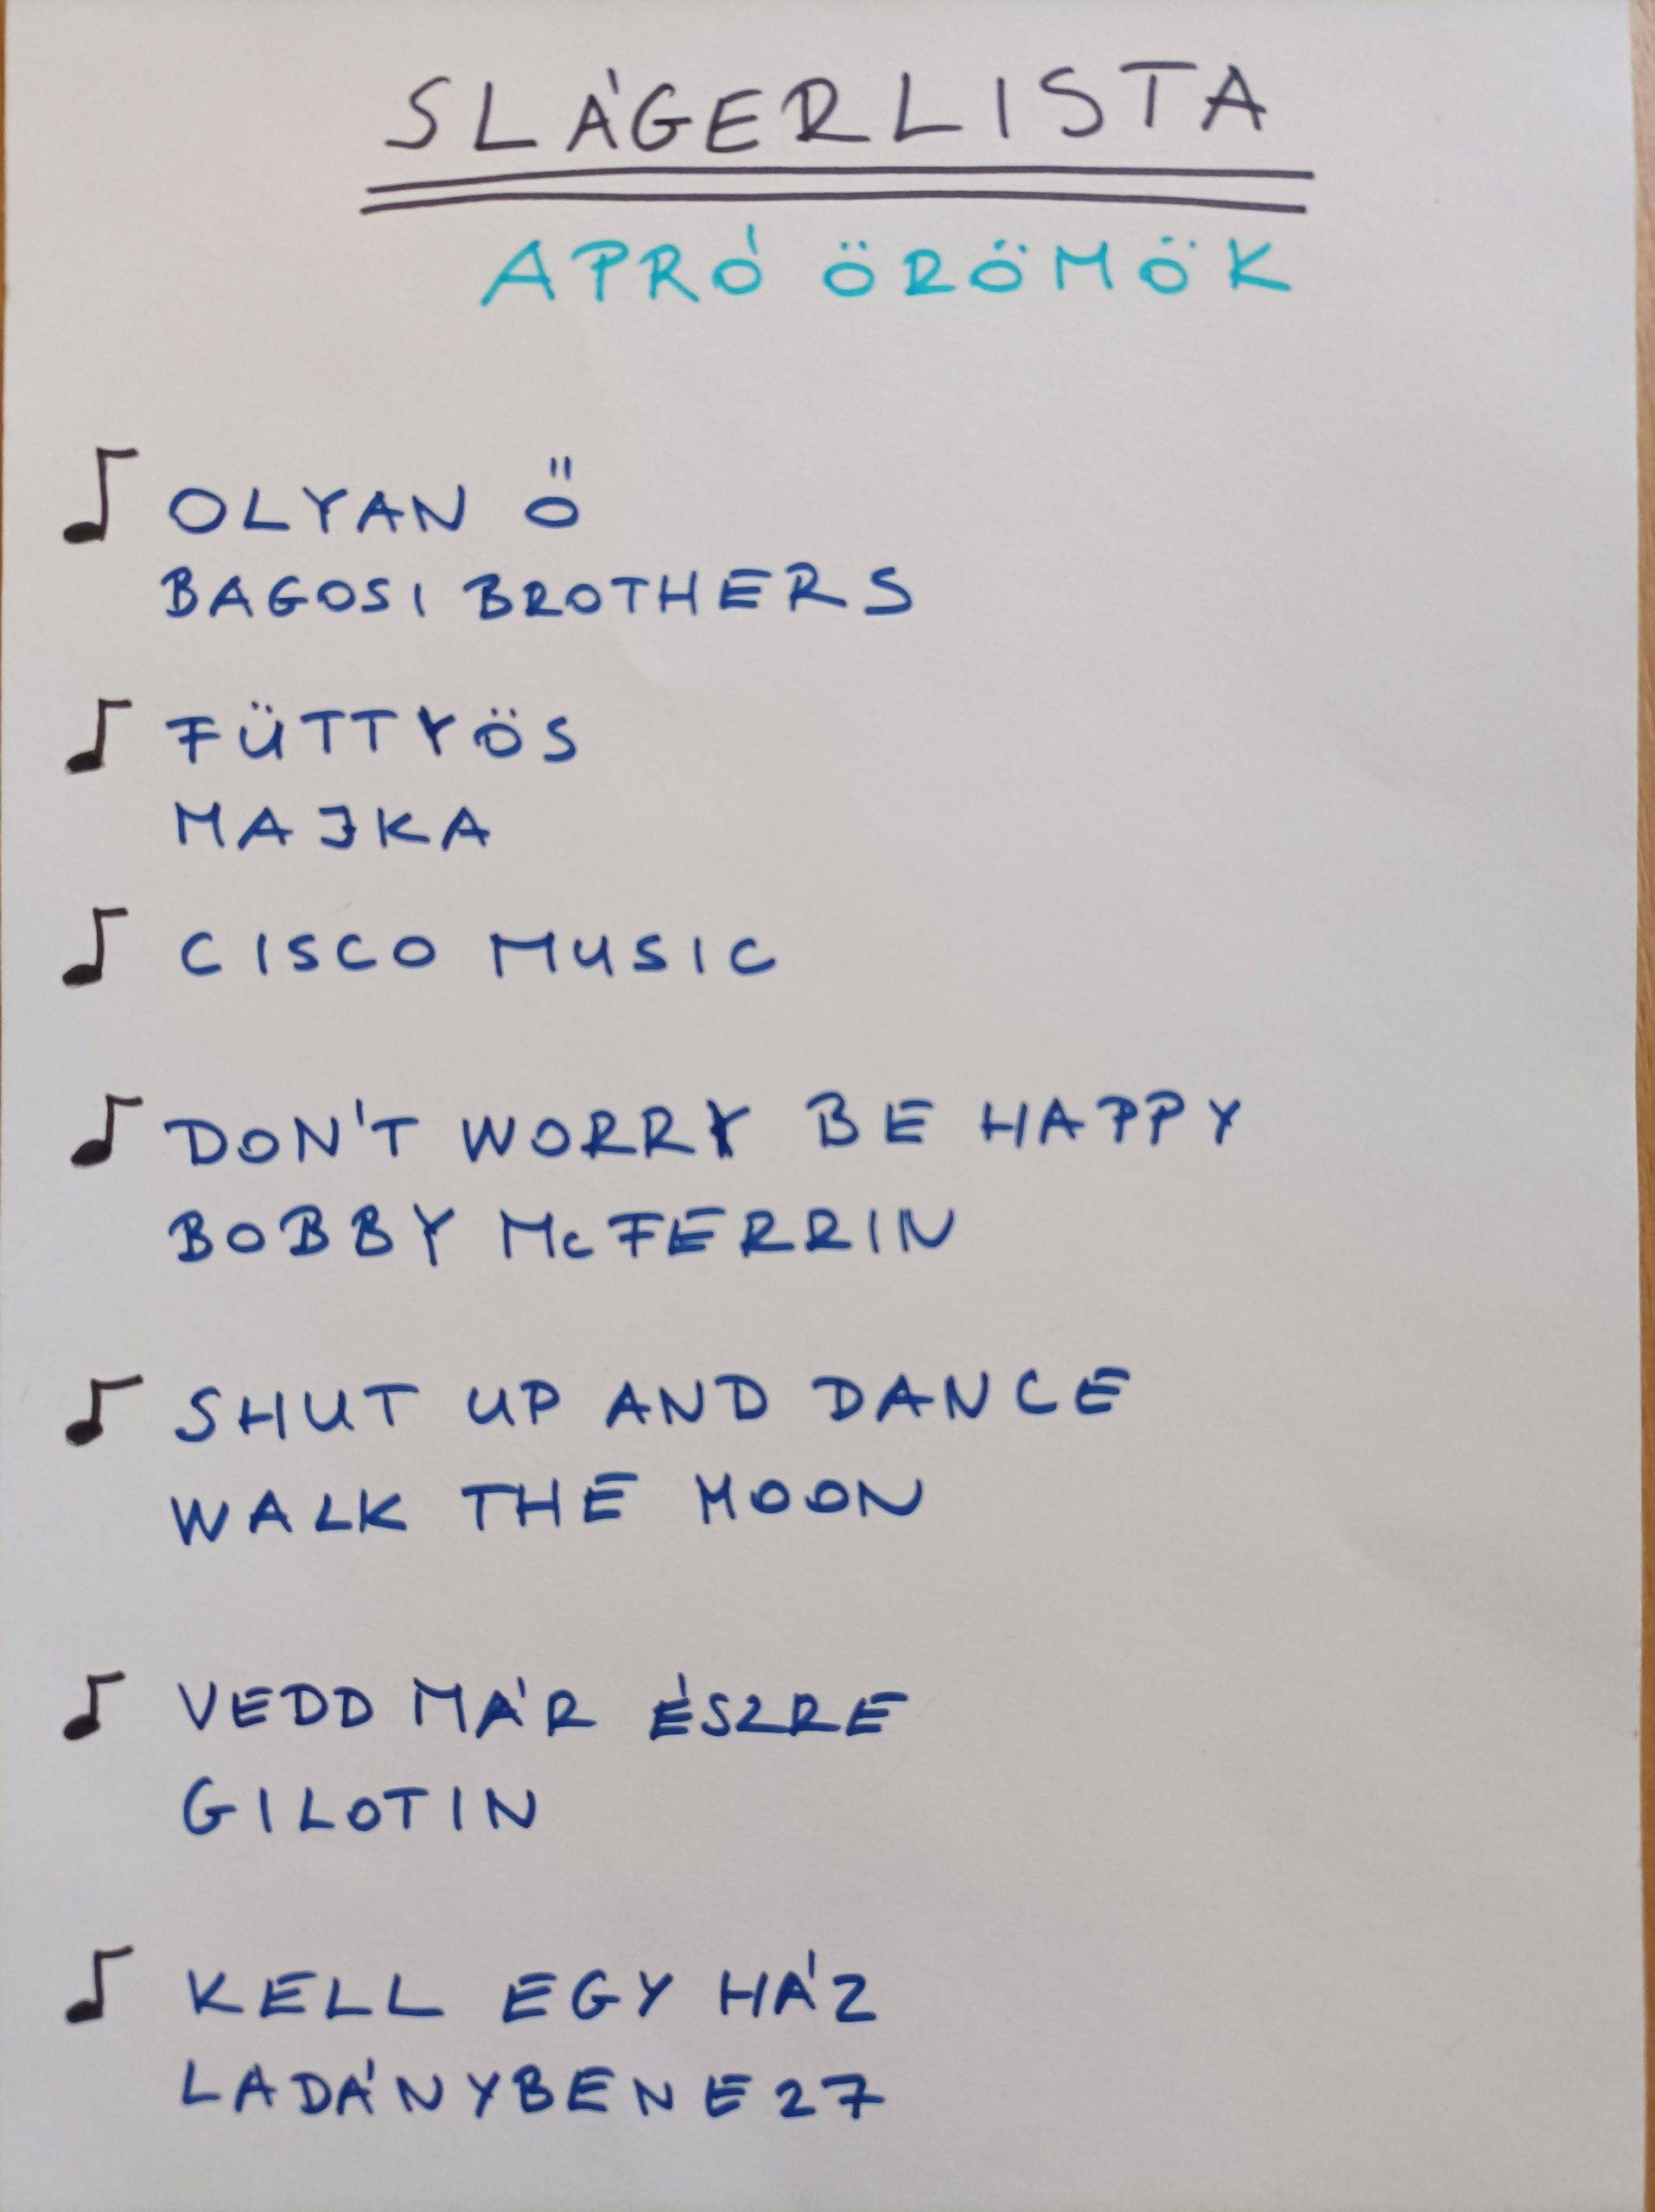 SLÁGERLISTA
APRÓ ÖRÖMÖK
OLYAN Ő
BAGOSI BROTHERS
FÜTTYÖS
MAJKA
CISCO MUSIC
DON'T WORRY BE HAPPY
BOBBY McFERRIN
SHUT UP AND DANCE
WALK THE MOON
VEDD MÁR ÉSZRE
GILOTIN
KELL EGY HÁZ
LADÁNYBENE27